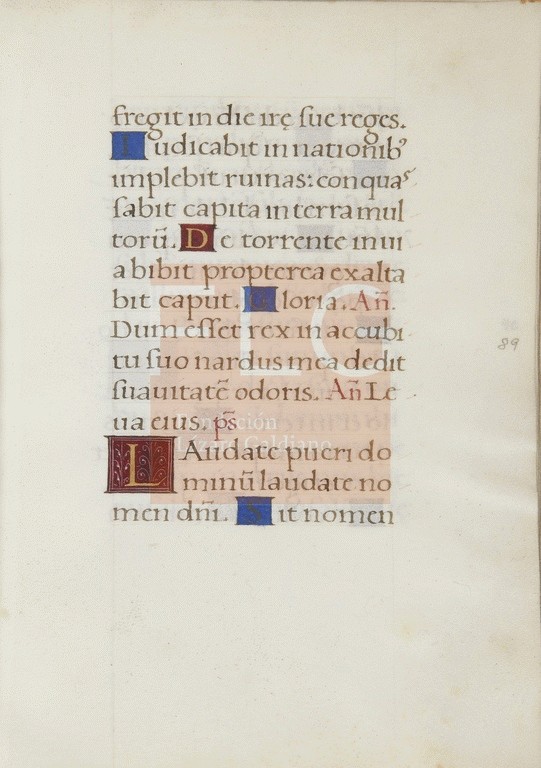 fregit in die irę sue reges.
Iudicabit in nationibꝰ
implebit ruinas: conquaſ
ſabit capita in terra mul
torū. De torrente in ui
a bibit propterea exalta
bit caput. Gloria. An̄.
Dum eſſet rex in accubi
tu ſuo nardus mea dedit
ſuauitatē odoris. An̄ Le
ua eius. ps̄
LAudate pueri do
minū laudate no
men dn̄i. Sit nomen
89
FLG
Fundación
Lázaro Galdiano